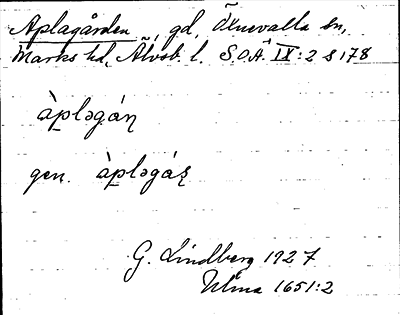 Aplagården, gd, Öxnevalla sn,
Marks hd, Älvsb. l. S.O.Ä IX:2 s 178
àpləgáṇ
gen. àpləgáṣ
G. Lindberg 1927
Ulma 1651:2